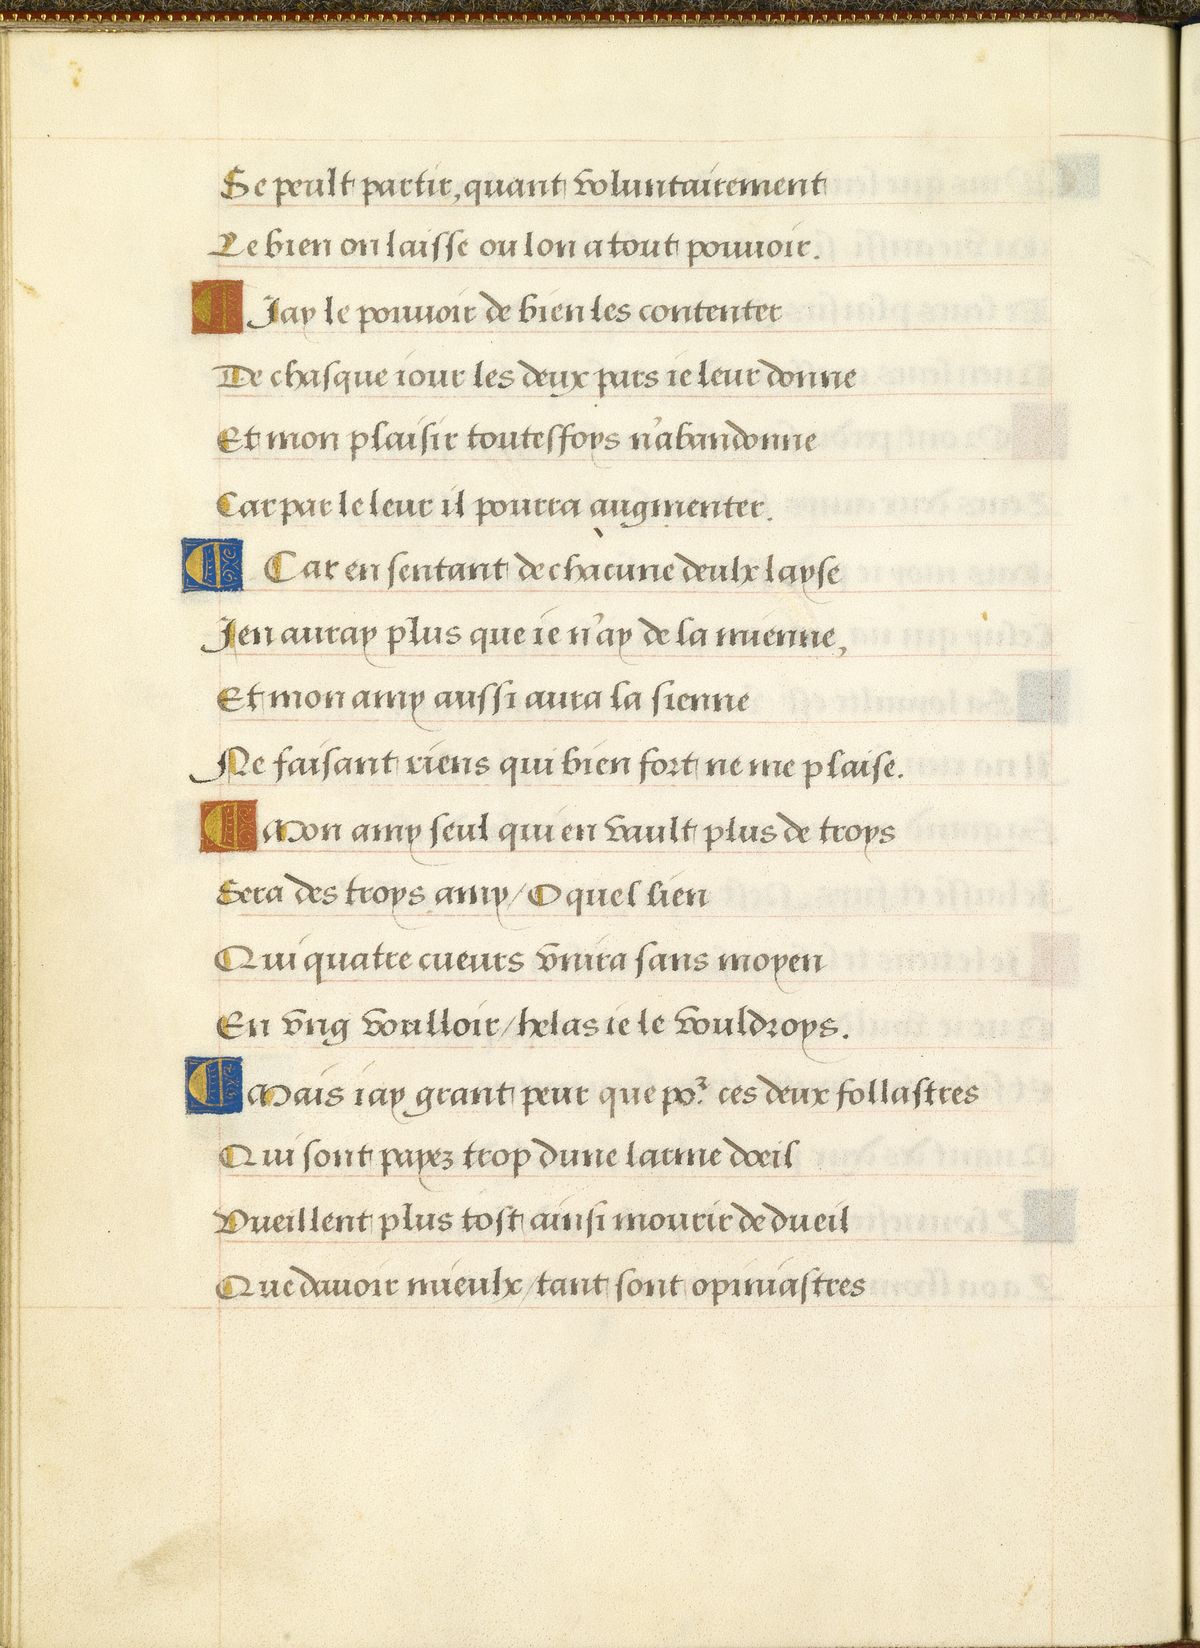 Se peult partir, quant voluntairement
Le bien on laisse ou lon a tout pouuoir.
Jay le pouuoir de bien les contenter
De chasque iour les deux pars ie leur donne
Et mon plaisir toutesfoys n'abandonne
Car par le leur il pourra augmenter.
Car en sentant de chacune deulx layse
Jen auray plus que ie n'ay de la mienne,
Et mon amy aussi aura la sienne
Ne faisant riens qui bien fort ne me plaise.
Mon amy seul qui en vault plus de troys
Sera des troys amy/ O quel lien
Qui quatre cueurs vnira sans moyen
En vng voulloir/ helas ie le vouldroys.
Mais iay grant peur que po.ʳ ces deux follastres
Qui sont payez trop dune larme doeil
Vueillent plus tost ainsi mourir de dueil
Que dauoir mieulx/ tant sont opiniastres